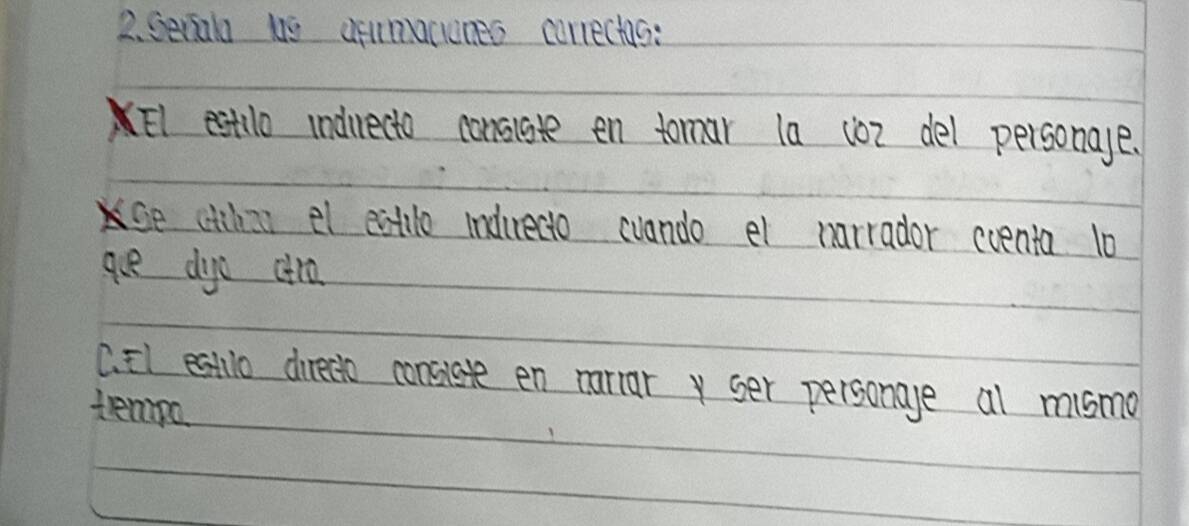 2. Señala las afirmaciones correctas:
X El estilo indirecto consiste en tomar la voz del personaje.
X Se utiliza el estilo indirecto cuando el narrador cuenta lo
que dijo otro.
C. El estilo directo consiste en narrar y ser personaje al mismo
tiempo.